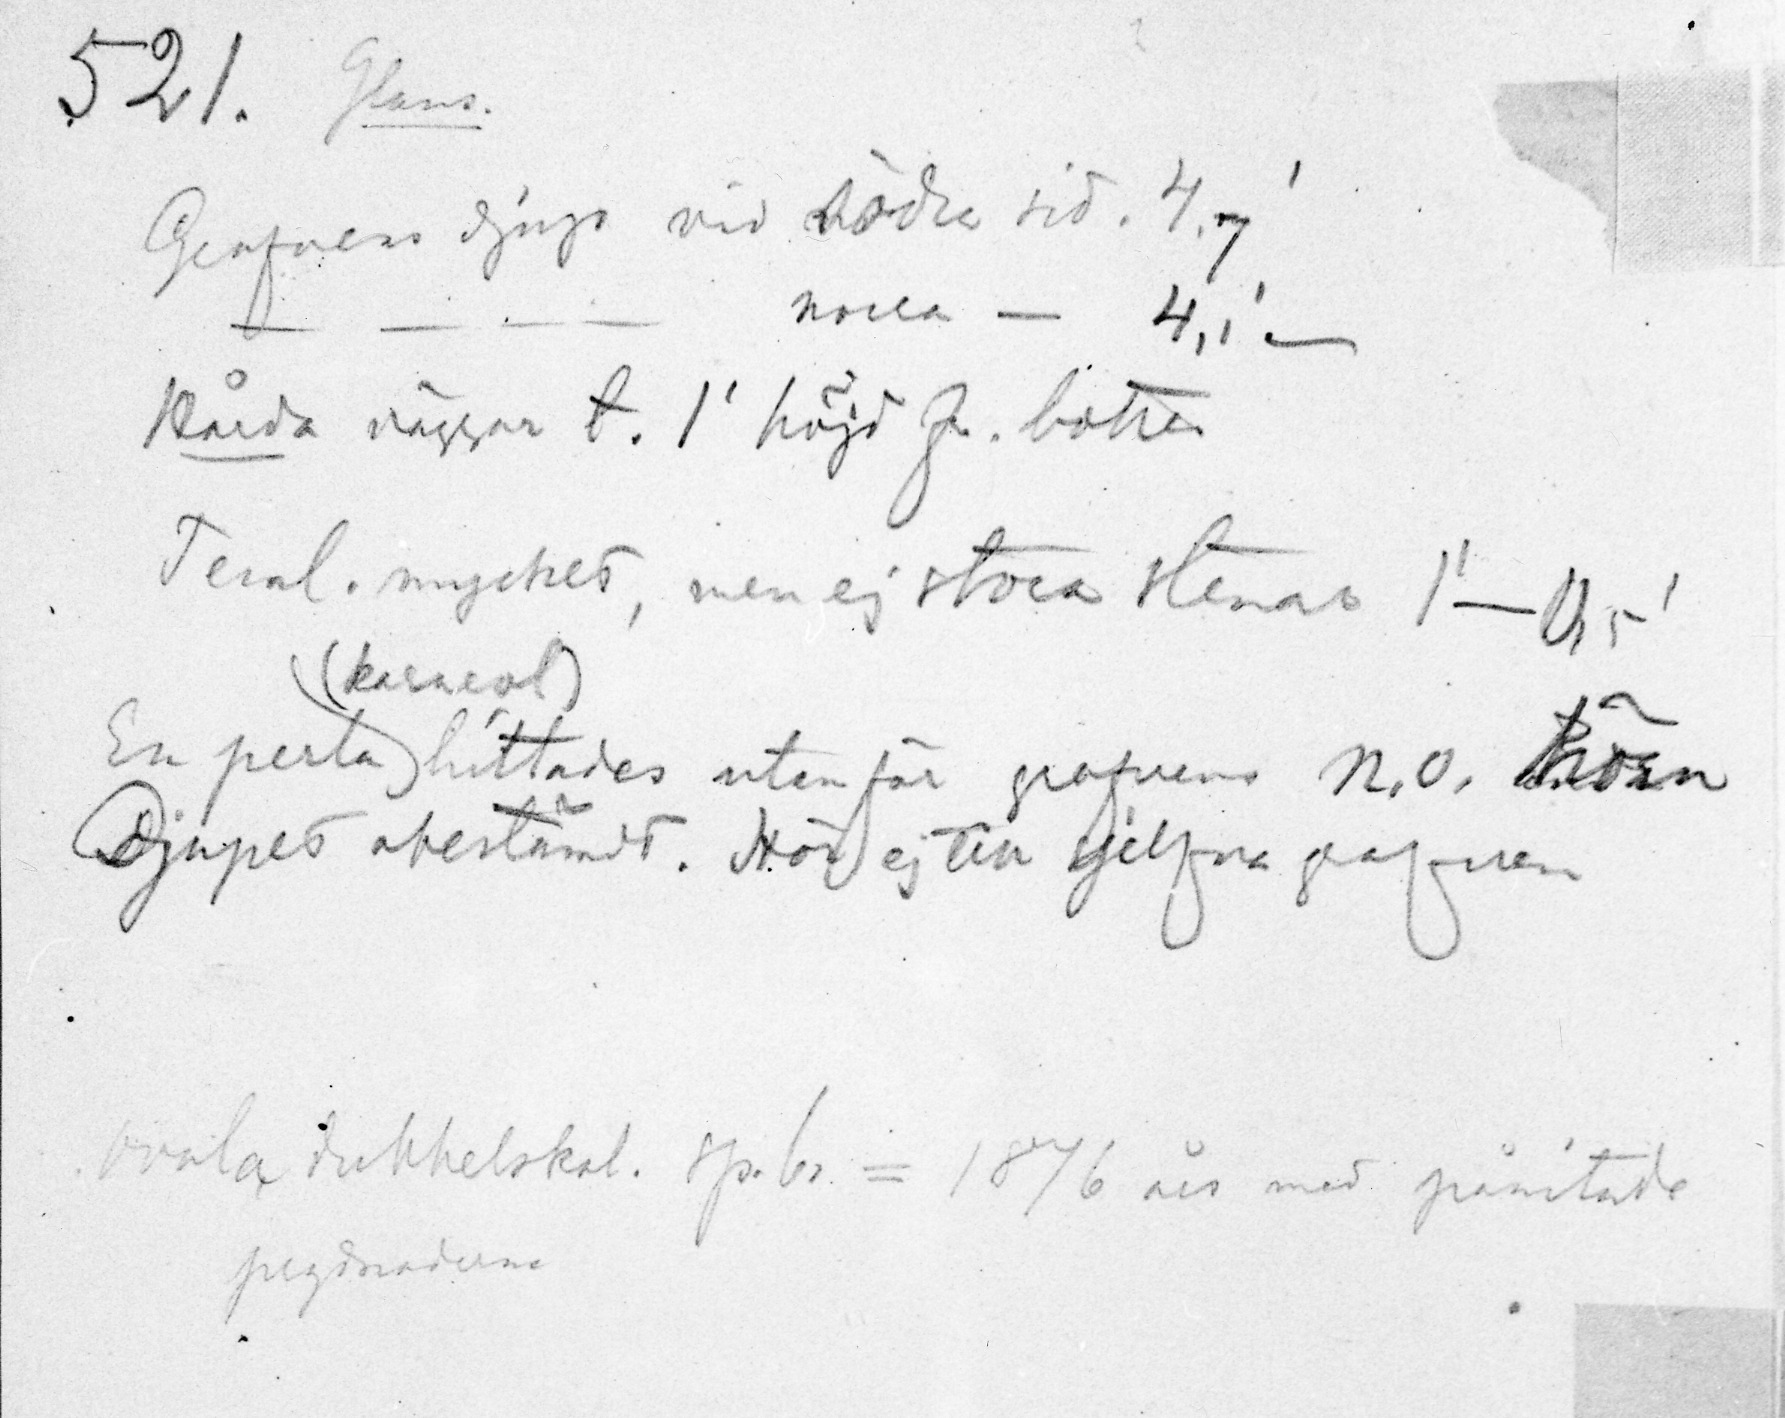 521. Glans.
Grafvens djup vid södra sid. 4,7'
— — — — norra — 4,1' —
Hårda väggar t. 1' högd fr. botten
Teml. mycket, men ej stora stenar 1'—0,5'
(karneol)
En perla hittades utanför grafvens N.O. hörn
Djupet obestämdt. Hör ej till sjelfva grafven
ovala dubbelskal. sp.b. = 1876 års med påritade
prydnaderna